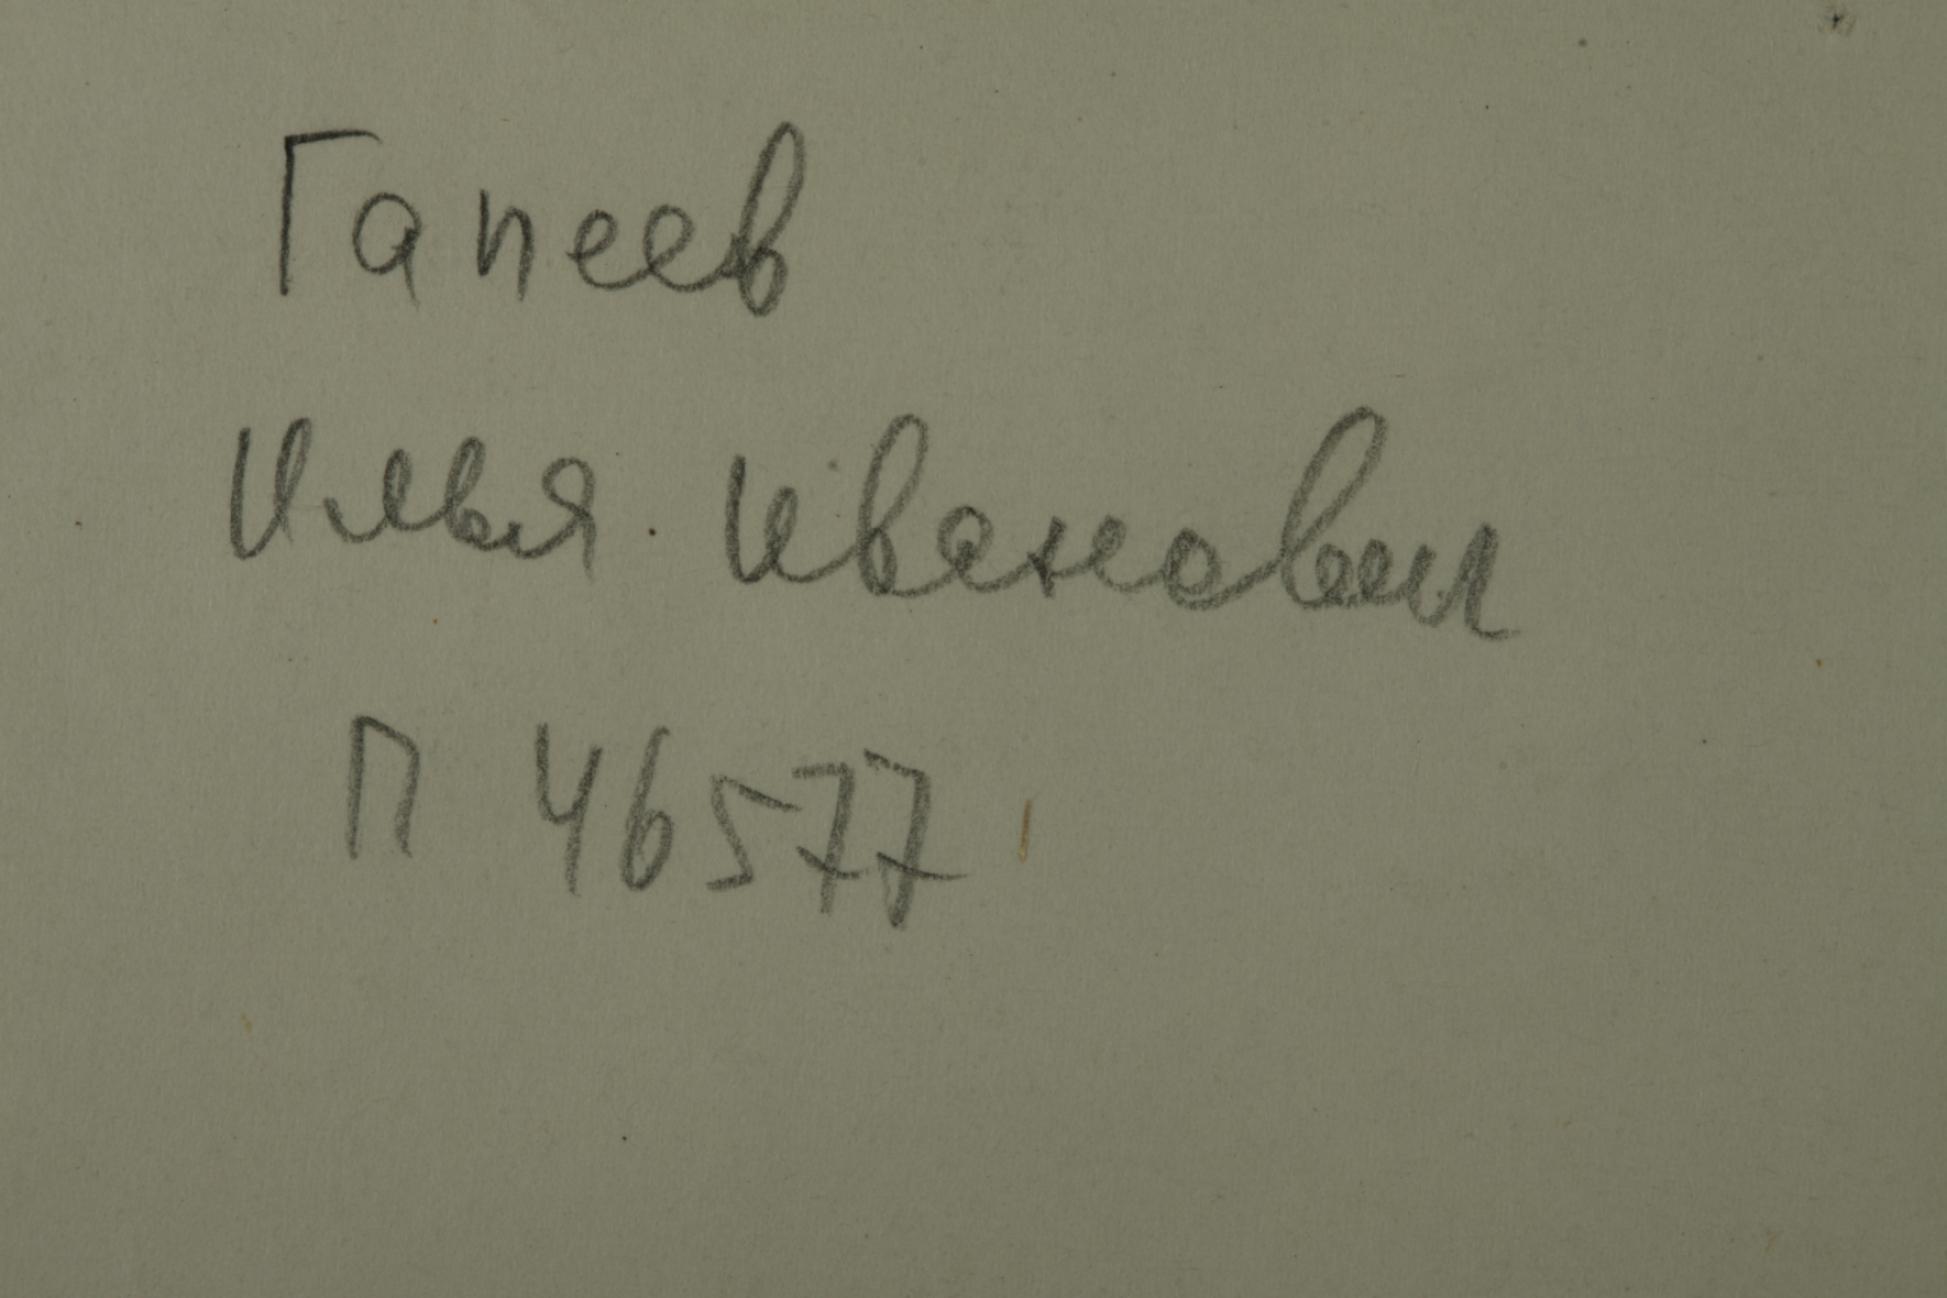 Гапеев
Илья Иванович
П 46577